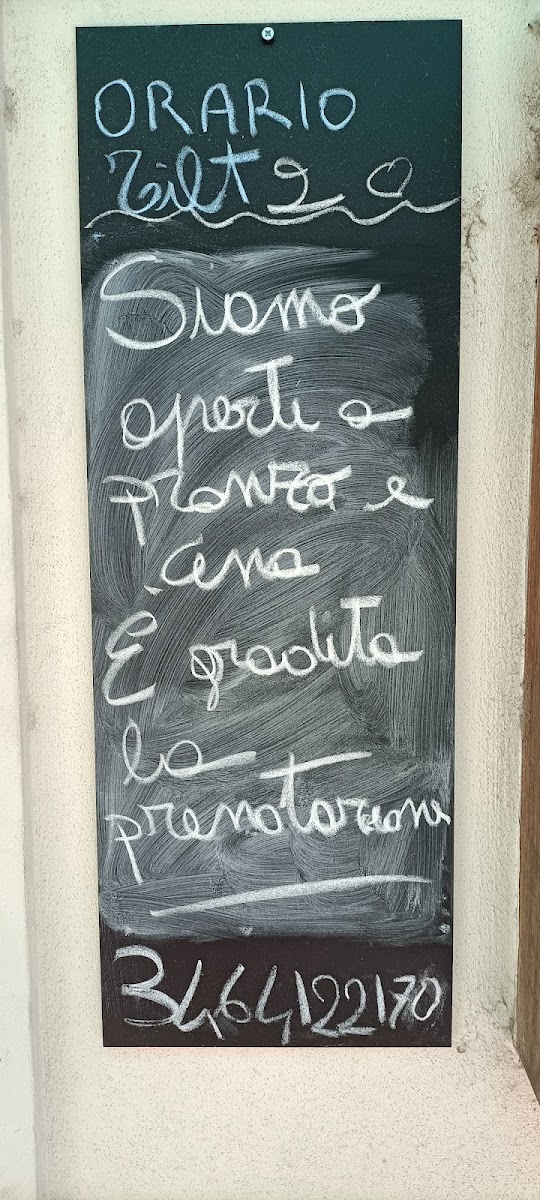 ORARIO
Tilt 2
Siamo
aperti a
pranzo e
cena
È gradita
la
prenotazione
3464122170